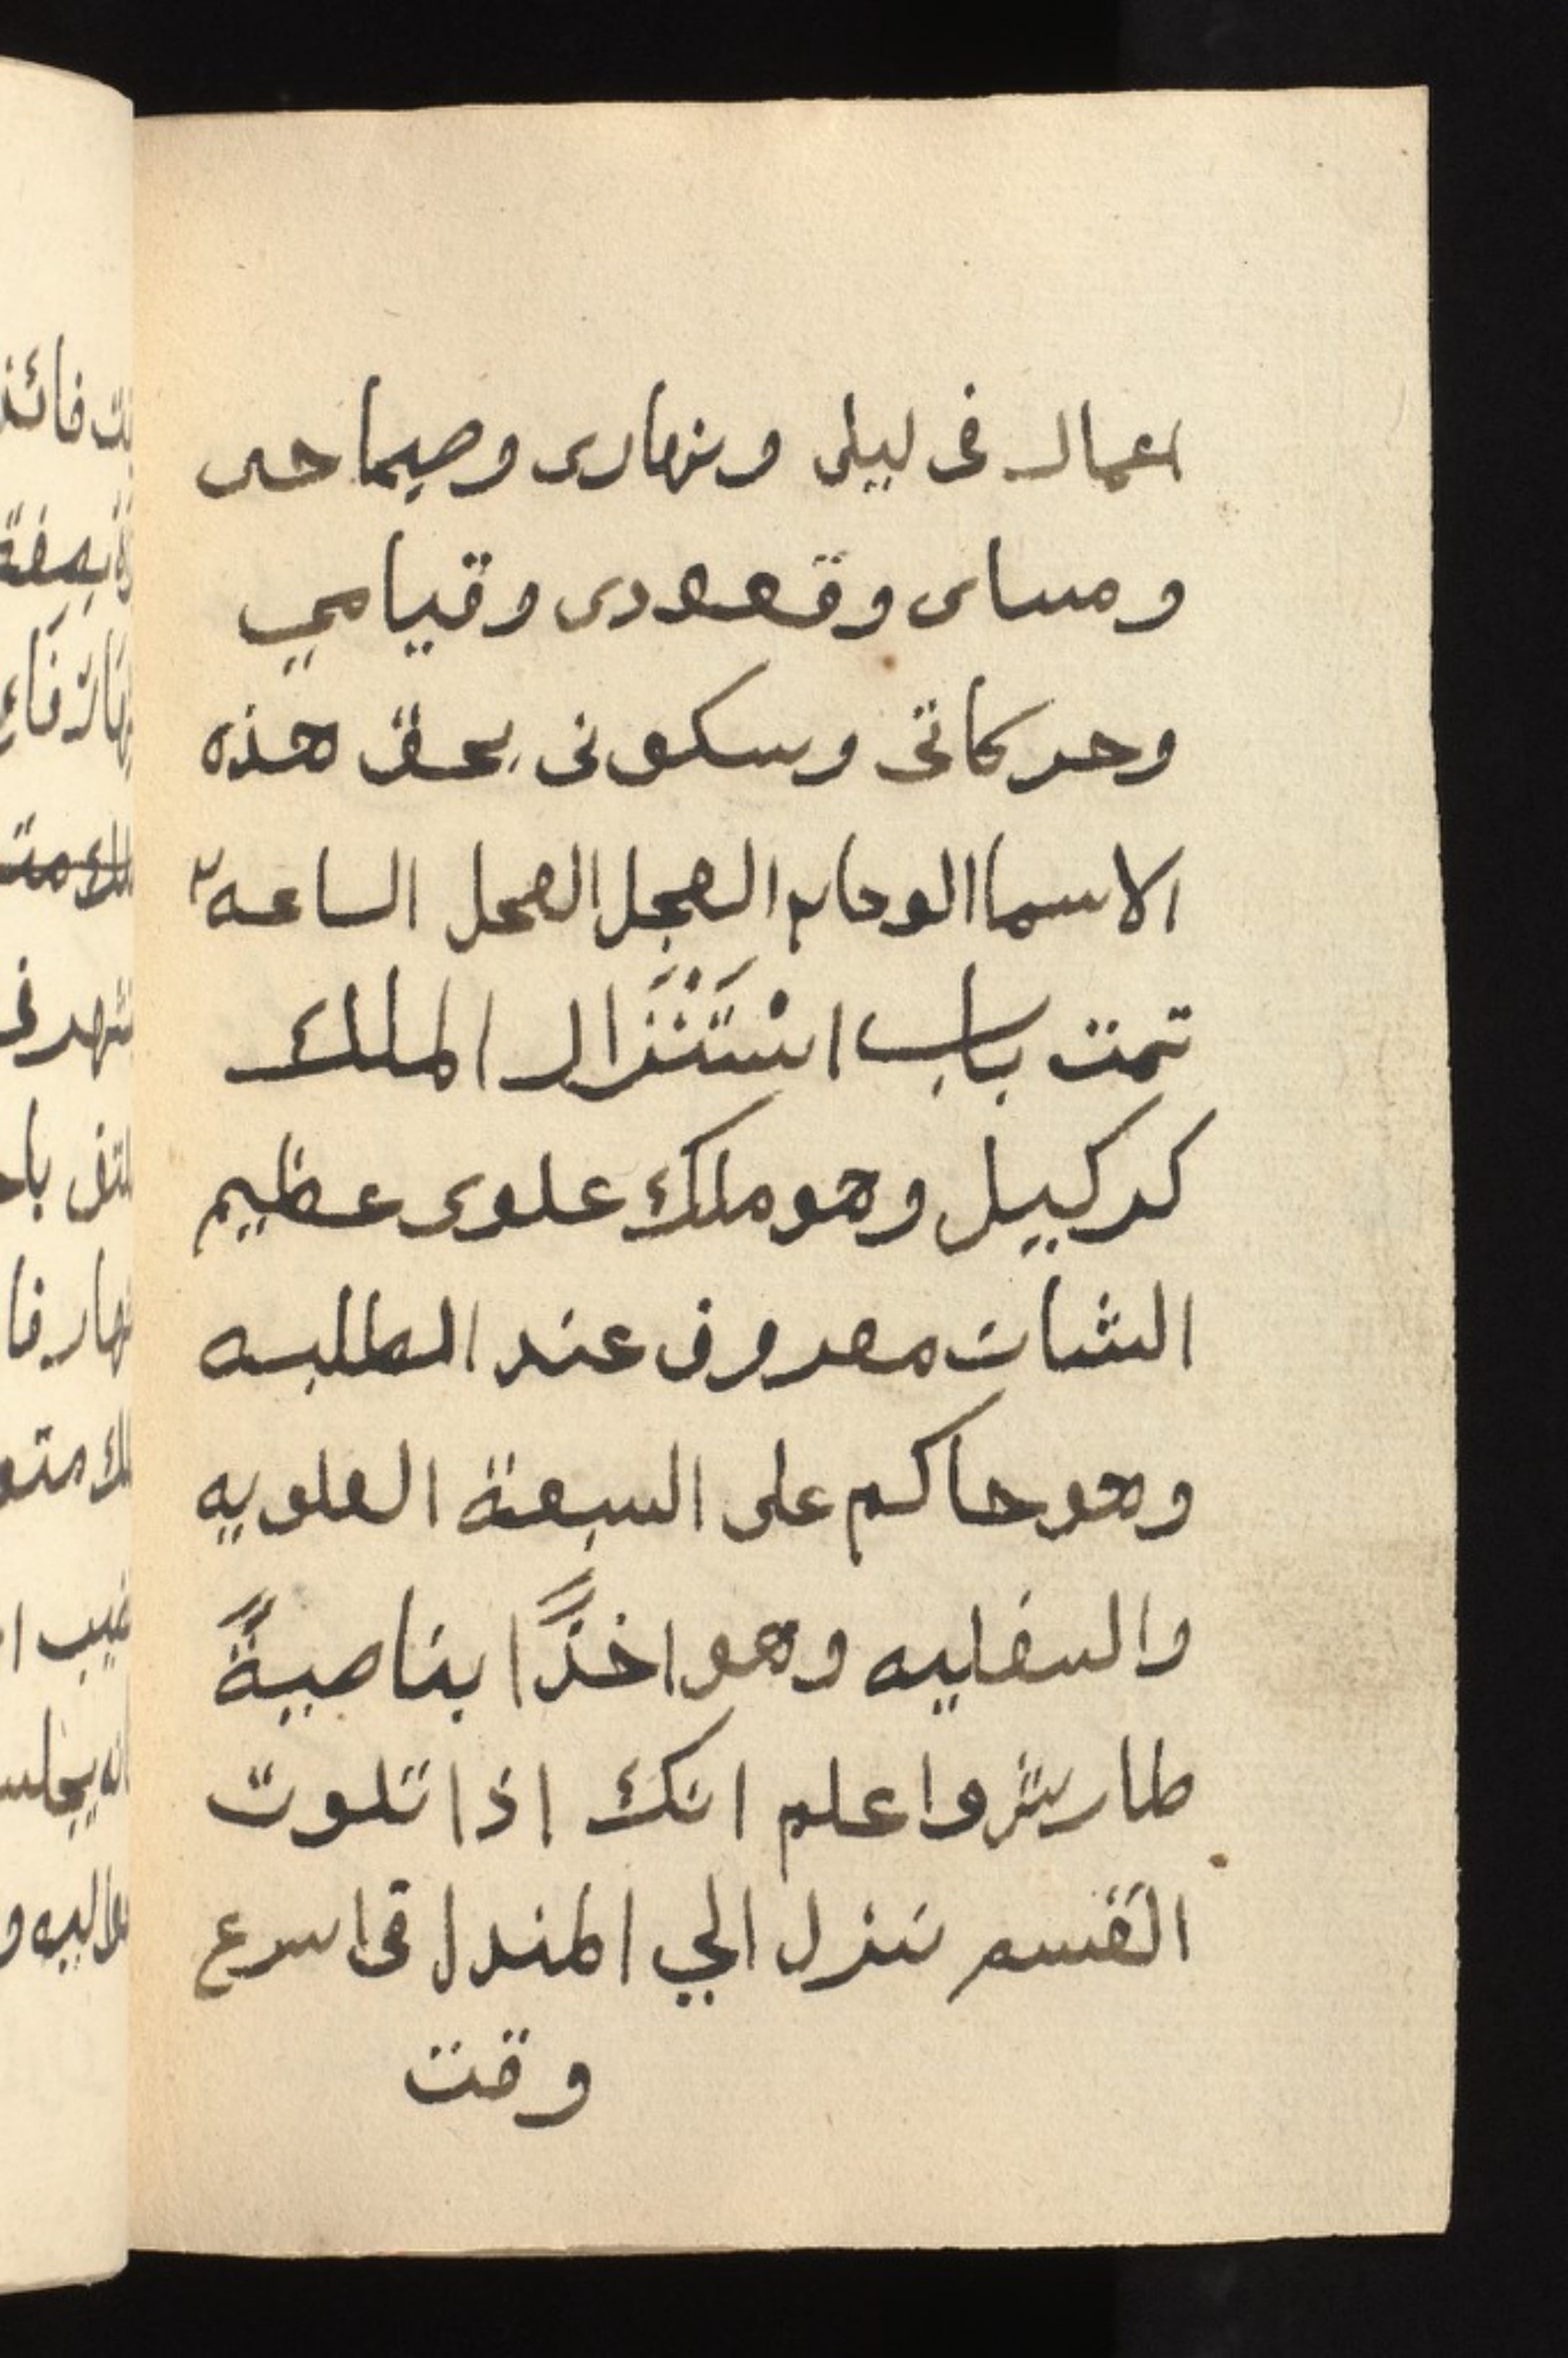 اعمال فى ليلى ونهارى وصباحى
ومساى وقعودى وقيامي
وحركاتى وسكونى بحق هذه
الاسما الوحا٢ العجل العجل الساعه٢
تمت باب اسْتَنْزَال الملك
كركيل وهو ملك علوى عظيم
الشان معروف عند الطلبه
وهو حاكم على السبعة العلويه
والسفليه وهو اخذًا بناصيةً
طارش واعلم انك اذا تلوت
القسم تنزل الي المندل فى اسرع
وقت